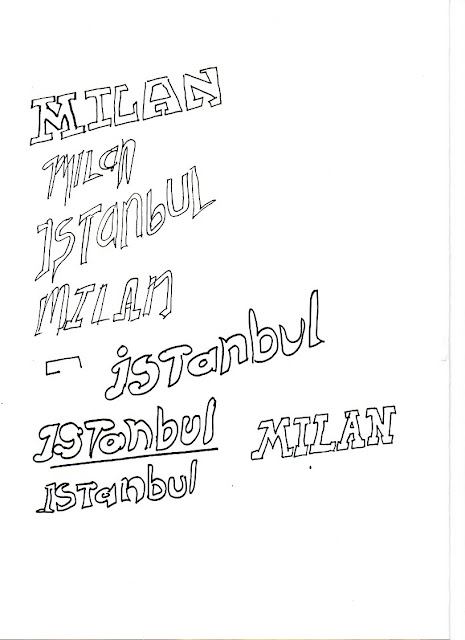 MILAN
MiLan
ISTanbUL
MILAN
isTanbul
ISTanbul
MILAN
ISTanbul